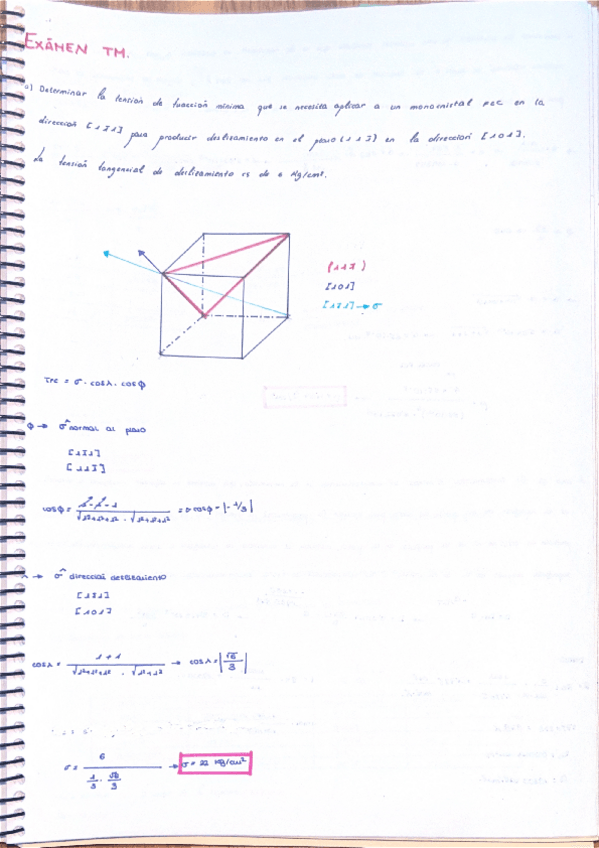 EXÁMEN TM.
a) Determinar la tensión de tracción mínima que se necesita aplicar a un monocristal FCC en la
dirección [11̄1] para producir deslizamiento en el plano (111̄) en la dirección [101].
La tensión tangencial de deslizamiento es de 6 Kg/cm².
(111̄)
[101]
[11̄1] → σ
τRC = σ · cosλ · cosϕ
ϕ → σ^normal al plano
[11̄1]
[111̄]
cosϕ = 1 - 1 - 1 / √1²+1²+1² · √1²+1²+1² = cosϕ = |-1/3|
λ → σ^dirección deslizamiento
[11̄1]
[101]
cosλ = 1 + 1 / √1²+1²+1² · √1²+1² → cosλ = |√6/3|
σ = 6 / 1/3 · √6/3 → σ = 22 Kg/cm²